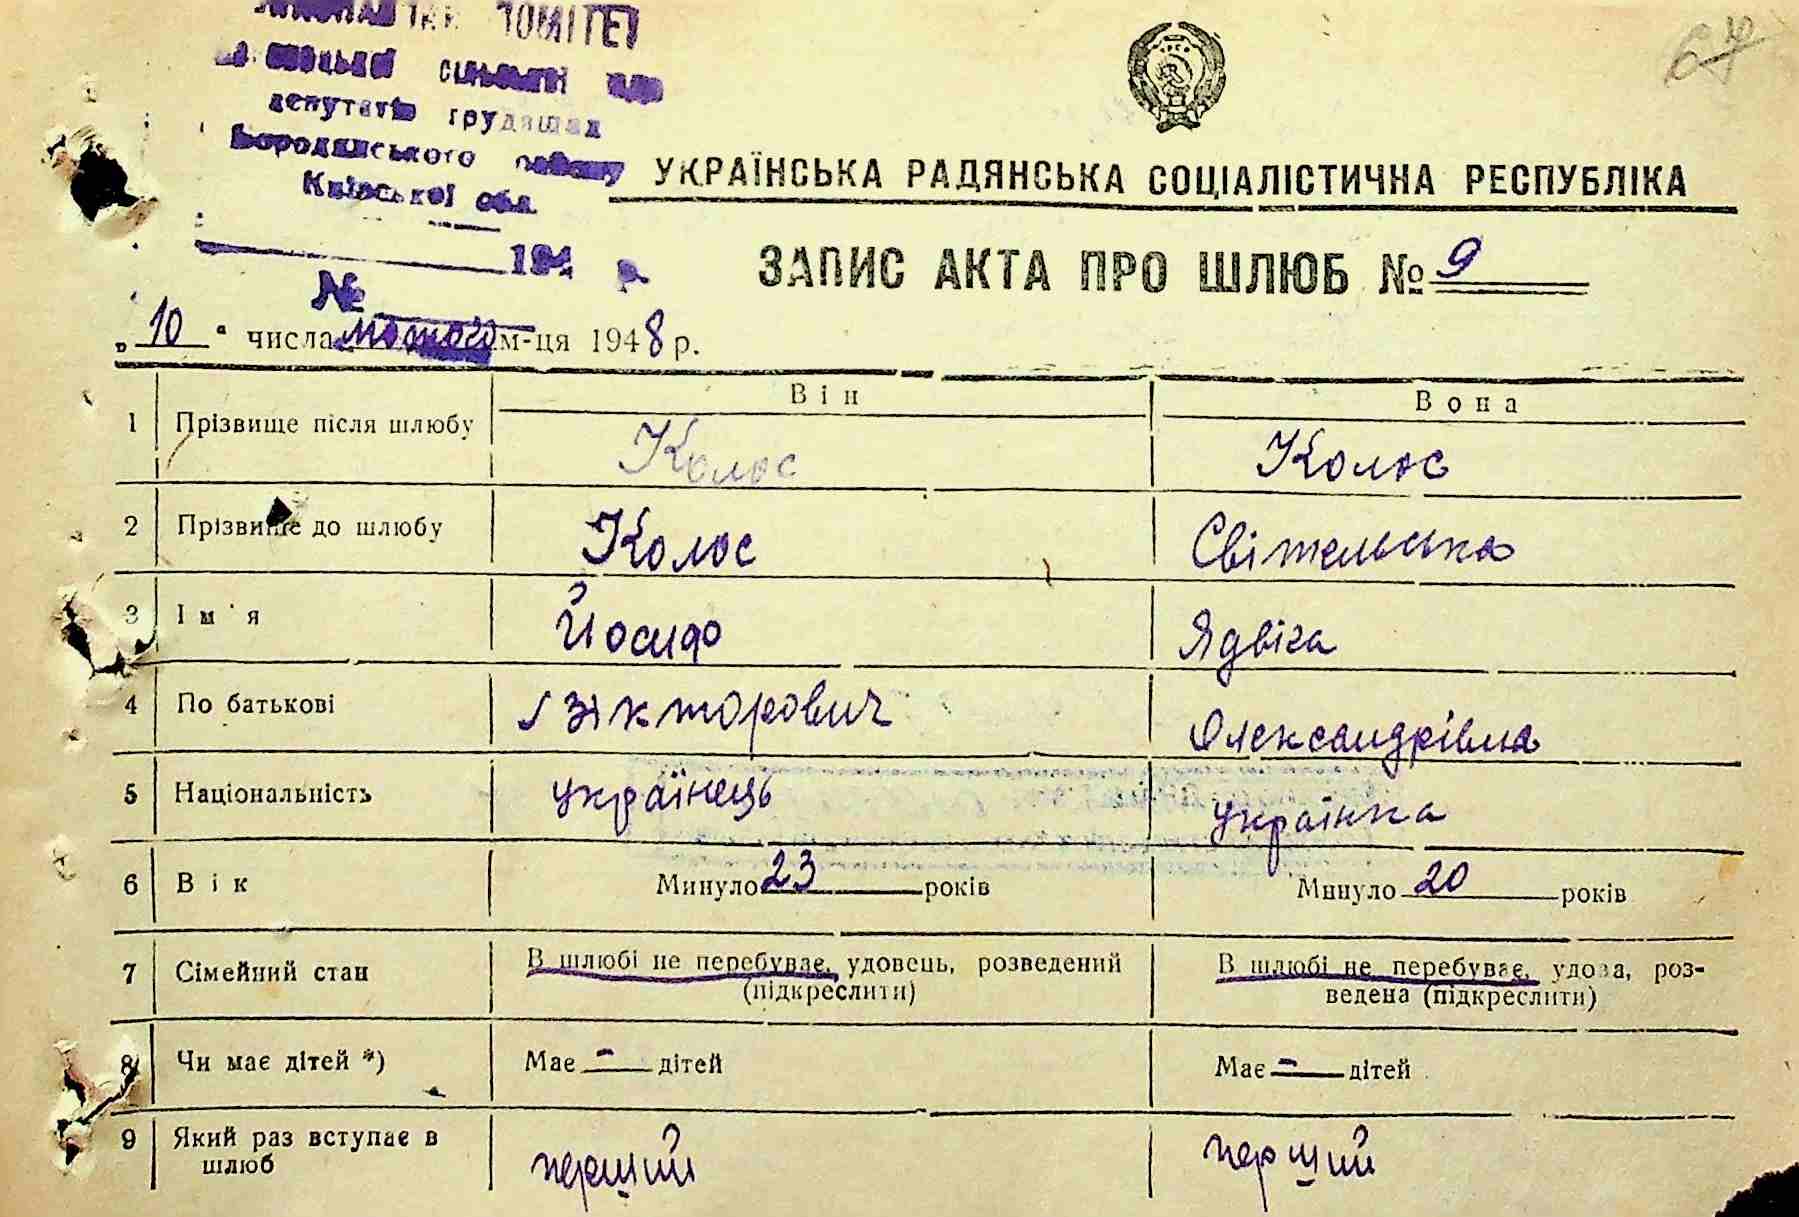 КОМІТЕТ
депутатів трудящих
Бородянського району
Київської обл.
194 р.
№
67
УКРАЇНСЬКА РАДЯНСЬКА СОЦІАЛІСТИЧНА РЕСПУБЛІКА
ЗАПИС АКТА ПРО ШЛЮБ № 9
„10" числа лютого м-ця 1948 р.
Він Вона
1 Прізвище після шлюбу Колос Колос
2 Прізвище до шлюбу Колос Світельська
3 Ім'я Йосиф Ядвіга
4 По батькові Вікторович Олександрівна
5 Національність українець українка
6 Вік Минуло 23 років Минуло 20 років
7 Сімейний стан В шлюбі не перебуває, удовець, розведений (підкреслити) В шлюбі не перебуває, удова, роз-
ведена (підкреслити)
8 Чи має дітей *) Має - дітей Має - дітей
9 Який раз вступає в шлюб перший перший